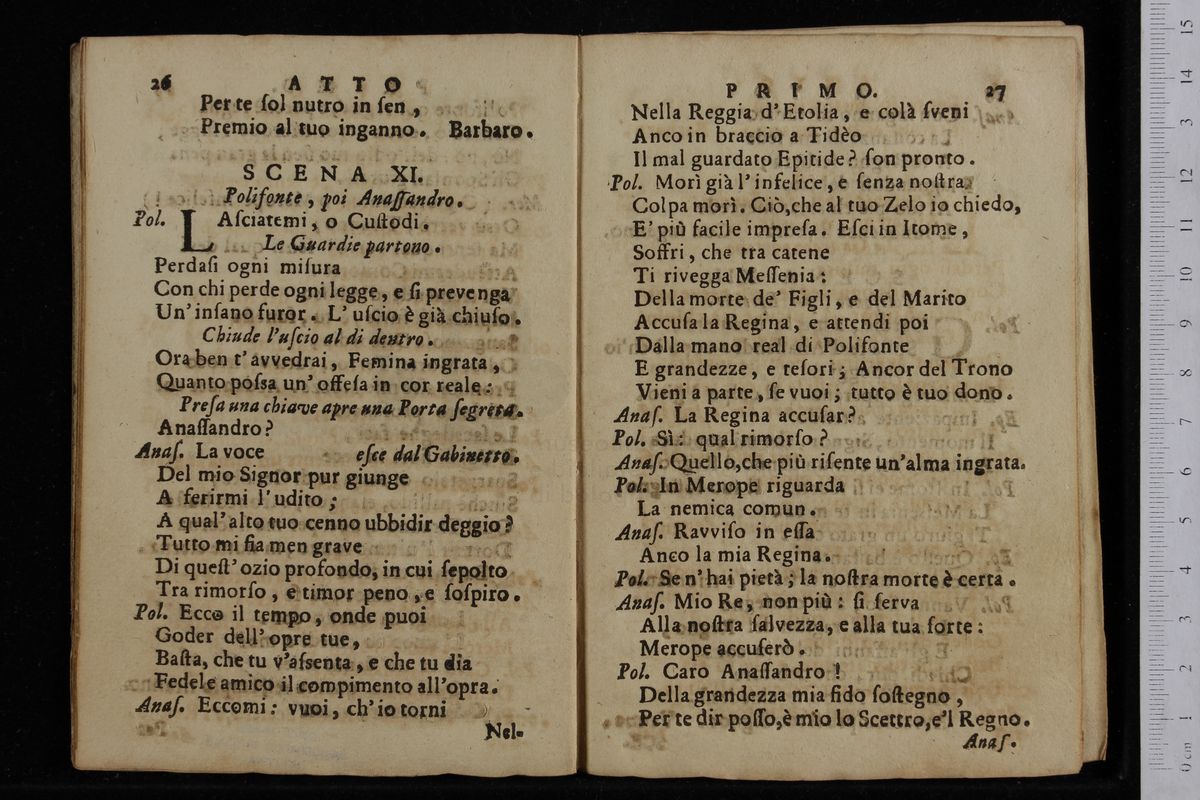 26 ATTO
Per te ſol nutro in ſen,
Premio al tuo inganno. Barbaro.
SCENA XI.
Polifonte, poi Anaſſandro.
Pol. LAſciatemi, o Cuſtodi.
Le Guardie partono.
Perdaſi ogni miſura
Con chi perde ogni legge, e ſi prevenga
Un' inſano furor. L' uſcio è già chiuſo.
Chiude l'uſcio al di dentro.
Ora ben t' avvedrai, Femina ingrata,
Quanto poſsa un' offeſa in cor reale:
Preſa una chiave apre una Porta ſegreta.
Anaſſandro?
Anaſ. La voce eſce dal Gabinetto.
Del mio Signor pur giunge
A ferirmi l' udito;
A qual' alto tuo cenno ubbidir deggio?
Tutto mi fia men grave
Di queſt' ozio profondo, in cui ſepolto
Tra rimorſo, e timor peno, e ſoſpiro.
Pol. Ecco il tempo, onde puoi
Goder dell' opre tue,
Baſta, che tu v'aſsenta, e che tu dia
Fedele amico il compimento all'opra.
Anaſ. Eccomi: vuoi, ch' io torni
Nel-
PRIMO. 27
Nella Reggia d' Etolia, e colà ſveni
Anco in braccio a Tidèo
Il mal guardato Epitide? ſon pronto.
Pol. Morì già l' infelice, e ſenza noſtra
Colpa morì. Ciò, che al tuo Zelo io chiedo,
E' più facile impreſa. Eſci in Itome,
Soffri, che tra catene
Ti rivegga Meſſenia:
Della morte de' Figli, e del Marito
Accuſa la Regina, e attendi poi
Dalla mano real di Polifonte
E grandezze, e teſori; Ancor del Trono
Vieni a parte, ſe vuoi; tutto è tuo dono.
Anaſ. La Regina accuſar?
Pol. Sì: qual rimorſo?
Anaſ. Quello, che più riſente un'alma ingrata.
Pol. In Merope riguarda
La nemica comun.
Anaſ. Ravviſo in eſſa
Anco la mia Regina.
Pol. Se n' hai pietà; la noſtra morte è certa.
Anaſ. Mio Re, non più: ſi ſerva
Alla noſtra ſalvezza, e alla tua ſorte:
Merope accuſerò.
Pol. Caro Anaſſandro!
Della grandezza mia fido ſoſtegno,
Per te dir poſſo, è mio lo Scettro, e'l Regno.
Anaſ.
0 cm 1 2 3 4 5 6 7 8 9 10 11 12 13 14 15